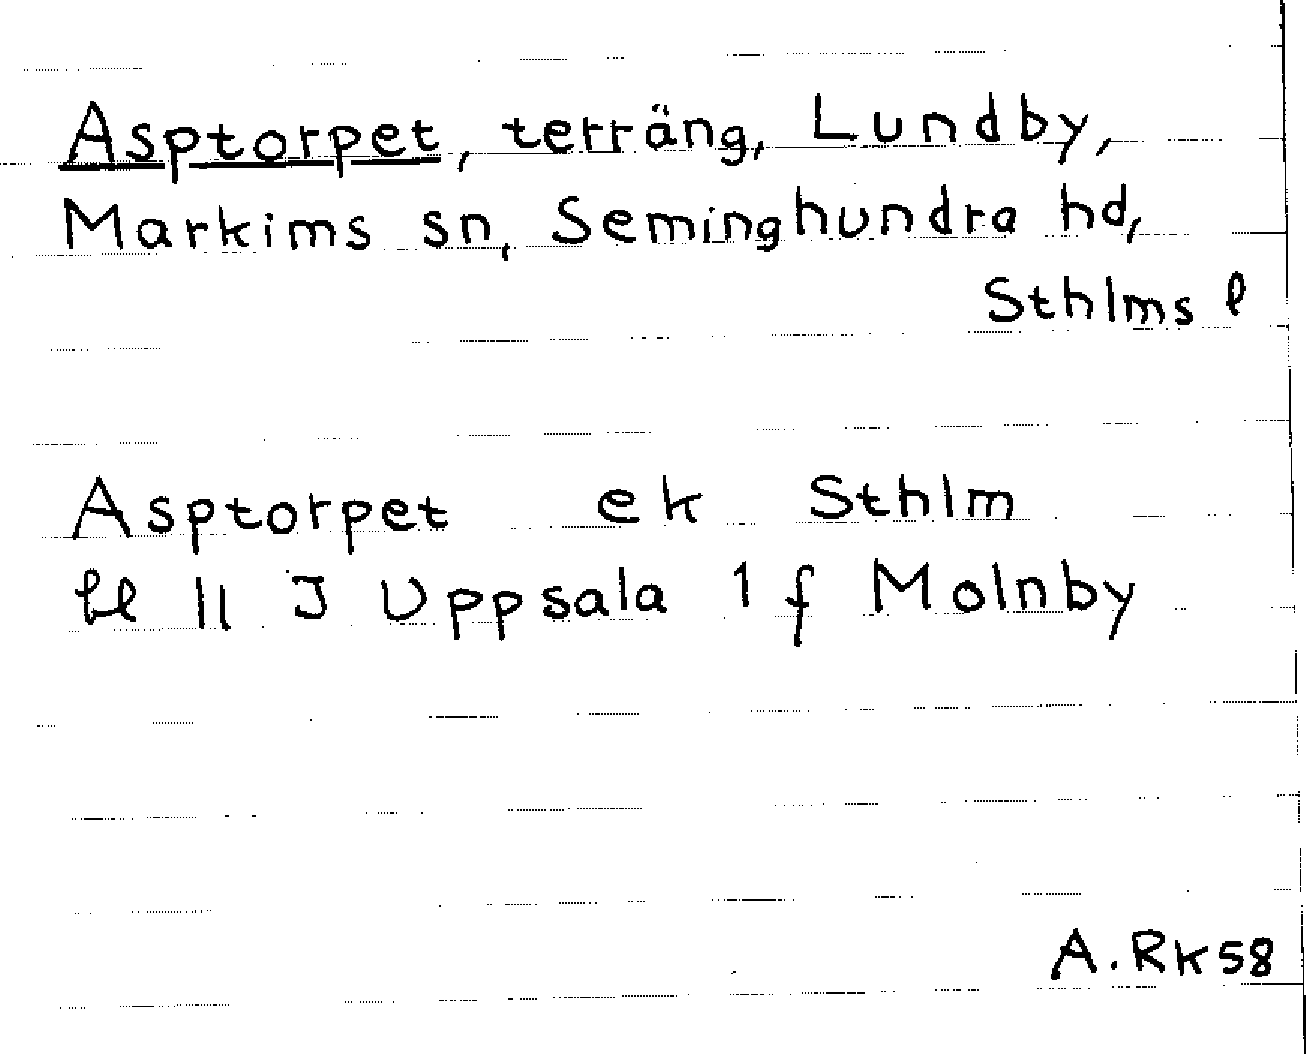 Asptorpet, terräng, Lundby,
Markims sn, Seminghundra hd,
Sthlms l
Asptorpet ek Sthlm
bl 11 I Uppsala 1 f Molnby
A.Rk58